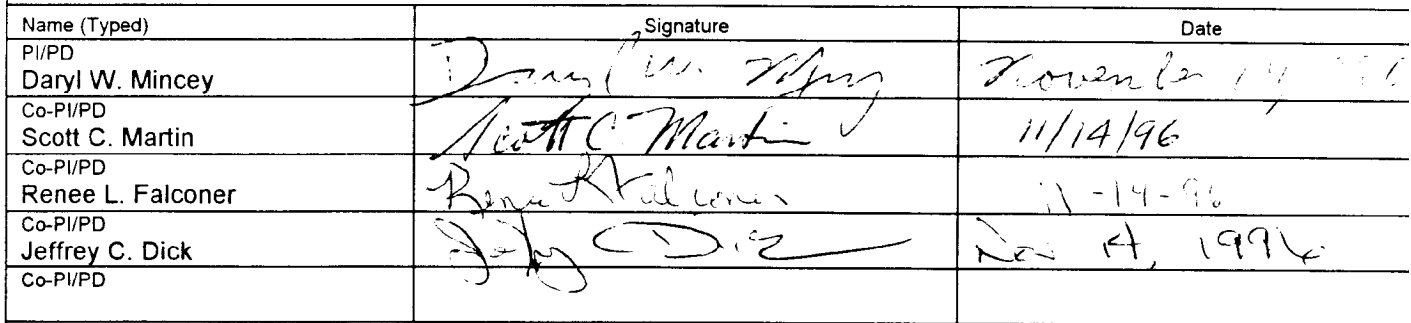 Name (Typed) Signature Date
PI/PD
Daryl W. Mincey Daryl W. November 14
Co-PI/PD
Scott C. Martin Scott C. Martin 11/14/96
Co-PI/PD
Renee L. Falconer Renee L Falconer 11-14-96
Co-PI/PD
Jeffrey C. Dick Dick Nov 14, 1996
Co-PI/PD